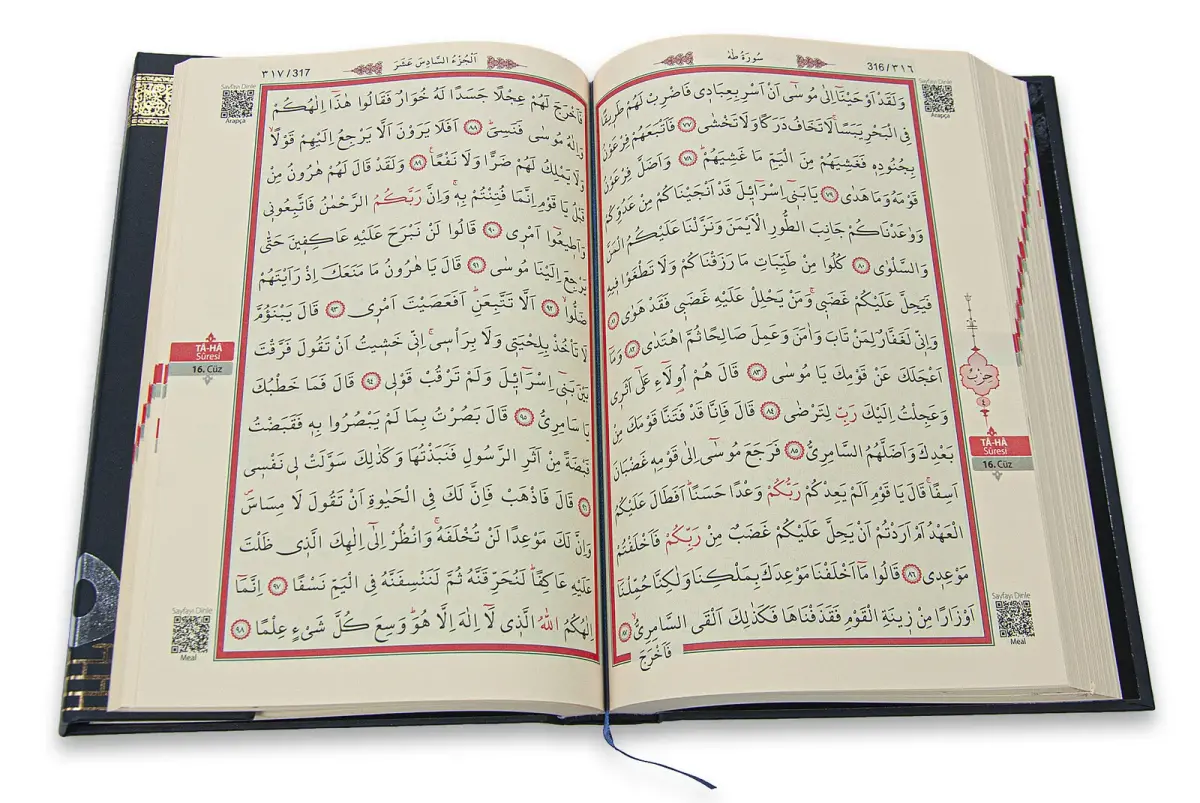 316/٣١٦
سُورَةُ طٰهٰ
Sayfayı Dinle
Arapça
وَلَقَدْ اَوْحَيْنَٓا اِلٰى مُوسٰٓى اَنْ اَسْرِ بِعِبَاد۪ي فَاضْرِبْ لَهُمْ طَر۪يقًا
فِي الْبَحْرِ يَبَسًاۙ لَا تَخَافُ دَرَكًا وَلَا تَخْشٰى ﴿٧٧﴾ فَاَتْبَعَهُمْ فِرْعَوْنُ
بِجُنُودِه۪ فَغَشِيَهُمْ مِنَ الْيَمِّ مَا غَشِيَهُمْۜ ﴿٧٨﴾ وَاَضَلَّ فِرْعَوْنُ
قَوْمَهُ وَمَا هَدٰى ﴿٧٩﴾ يَا بَن۪ٓي اِسْرَٓائ۪لَ قَدْ اَنْجَيْنَاكُمْ مِنْ عَدُوِّكُمْ
وَوٰعَدْنَاكُمْ جَانِبَ الطُّورِ الْاَيْمَنَ وَنَزَّلْنَا عَلَيْكُمُ الْمَنَّ
وَالسَّلْوٰى ﴿٨٠﴾ كُلُوا مِنْ طَيِّبَاتِ مَا رَزَقْنَاكُمْ وَلَا تَطْغَوْا ف۪يهِ
فَيَحِلَّ عَلَيْكُمْ غَضَب۪يۚ وَمَنْ يَحْلِلْ عَلَيْهِ غَضَب۪ي فَقَدْ هَوٰى ﴿٨١﴾
وَاِنّ۪ي لَغَفَّارٌ لِمَنْ تَابَ وَاٰمَنَ وَعَمِلَ صَالِحًا ثُمَّ اهْتَدٰى ﴿٨٢﴾ وَمَٓا
اَعْجَلَكَ عَنْ قَوْمِكَ يَا مُوسٰى ﴿٨٣﴾ قَالَ هُمْ اُو۬لَٓاءِ عَلٰٓى اَثَر۪ي
وَعَجِلْتُ اِلَيْكَ رَبِّ لِتَرْضٰى ﴿٨٤﴾ قَالَ فَاِنَّا قَدْ فَتَنَّا قَوْمَكَ مِنْ
بَعْدِكَ وَاَضَلَّهُمُ السَّامِرِيُّ ﴿٨٥﴾ فَرَجَعَ مُوسٰٓى اِلٰى قَوْمِه۪ غَضْبَانَ
اَسِفًاۚ قَالَ يَا قَوْمِ اَلَمْ يَعِدْكُمْ رَبُّكُمْ وَعْدًا حَسَنًاۜ اَفَطَالَ عَلَيْكُمُ
الْعَهْدُ اَمْ اَرَدْتُمْ اَنْ يَحِلَّ عَلَيْكُمْ غَضَبٌ مِنْ رَبِّكُمْ فَاَخْلَفْتُمْ
مَوْعِد۪ي ﴿٨٦﴾ قَالُوا مَٓا اَخْلَفْنَا مَوْعِدَكَ بِمَلْكِنَا وَلٰكِنَّا حُمِّلْنَٓا
اَوْزَارًا مِنْ ز۪ينَةِ الْقَوْمِ فَقَذَفْنَاهَا فَكَذٰلِكَ اَلْقَى السَّامِرِيُّۙ ﴿٨٧﴾
فَاَخْرَجَ
حزب
٤
TÂ-HÂ
Sûresi
16. Cüz
Sayfayı Dinle
Meal
اَلْجُزْءُ السَّادِسَ عَشَرَ
٣١٧/317
Sayfayı Dinle
Arapça
فَاَخْرَجَ لَهُمْ عِجْلًا جَسَدًا لَهُ خُوَارٌ فَقَالُوا هٰذَٓا اِلٰهُكُمْ
وَاِلٰهُ مُوسٰى فَنَسِيَۜ ﴿٨٨﴾ اَفَلَا يَرَوْنَ اَلَّا يَرْجِعُ اِلَيْهِمْ قَوْلًاۙ
وَلَا يَمْلِكُ لَهُمْ ضَرًّا وَلَا نَفْعًا۟ ﴿٨٩﴾ وَلَقَدْ قَالَ لَهُمْ هٰرُونُ مِنْ
قَبْلُ يَا قَوْمِ اِنَّمَا فُتِنْتُمْ بِه۪ۚ وَاِنَّ رَبَّكُمُ الرَّحْمٰنُ فَاتَّبِعُون۪ي
وَاَط۪يعُٓوا اَمْر۪ي ﴿٩٠﴾ قَالُوا لَنْ نَبْرَحَ عَلَيْهِ عَاكِف۪ينَ حَتّٰى
يَرْجِعَ اِلَيْنَا مُوسٰى ﴿٩١﴾ قَالَ يَا هٰرُونُ مَا مَنَعَكَ اِذْ رَاَيْتَهُمْ
ضَلُّواۙ ﴿٩٢﴾ اَلَّا تَتَّبِعَنِۜ اَفَعَصَيْتَ اَمْر۪ي ﴿٩٣﴾ قَالَ يَبْنَؤُ۬مَّ
لَا تَأْخُذْ بِلِحْيَت۪ي وَلَا بِرَأْس۪يۚ اِنّ۪ي خَش۪يتُ اَنْ تَقُولَ فَرَّقْتَ
بَيْنَ بَن۪ٓي اِسْرَٓائ۪لَ وَلَمْ تَرْقُبْ قَوْل۪ي ﴿٩٤﴾ قَالَ فَمَا خَطْبُكَ
يَا سَامِرِيُّ ﴿٩٥﴾ قَالَ بَصُرْتُ بِمَا لَمْ يَبْصُرُوا بِه۪ فَقَبَضْتُ
قَبْضَةً مِنْ اَثَرِ الرَّسُولِ فَنَبَذْتُهَا وَكَذٰلِكَ سَوَّلَتْ ل۪ي نَفْس۪ي
﴿٩٦﴾ قَالَ فَاذْهَبْ فَاِنَّ لَكَ فِي الْحَيٰوةِ اَنْ تَقُولَ لَا مِسَاسَۖ
وَاِنَّ لَكَ مَوْعِدًا لَنْ تُخْلَفَهُۚ وَانْظُرْ اِلٰٓى اِلٰهِكَ الَّذ۪ي ظَلْتَ
عَلَيْهِ عَاكِفًاۜ لَنُحَرِّقَنَّهُ ثُمَّ لَنَنْسِفَنَّهُ فِي الْيَمِّ نَسْفًا ﴿٩٧﴾ اِنَّمَٓا
اِلٰهُكُمُ اللّٰهُ الَّذ۪ي لَٓا اِلٰهَ اِلَّا هُوَۜ وَسِعَ كُلَّ شَيْءٍ عِلْمًا ﴿٩٨﴾
TÂ-HÂ
Sûresi
16. Cüz
Sayfayı Dinle
Meal